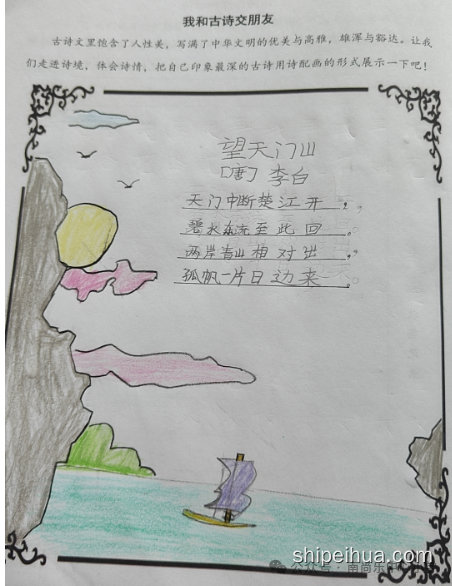 我和古诗交朋友
古诗文里饱含了人性美，写满了中华文明的优美与高雅，雄浑与豁达。让我
们走进诗境，体会诗情，把自己印象最深的古诗用诗配画的形式展示一下吧！
望天门山
[唐] 李白
天门中断楚江开，
碧水东流至此回。
两岸青山相对出，
孤帆一片日边来。
公众号·南尚乐
shipeihua.com